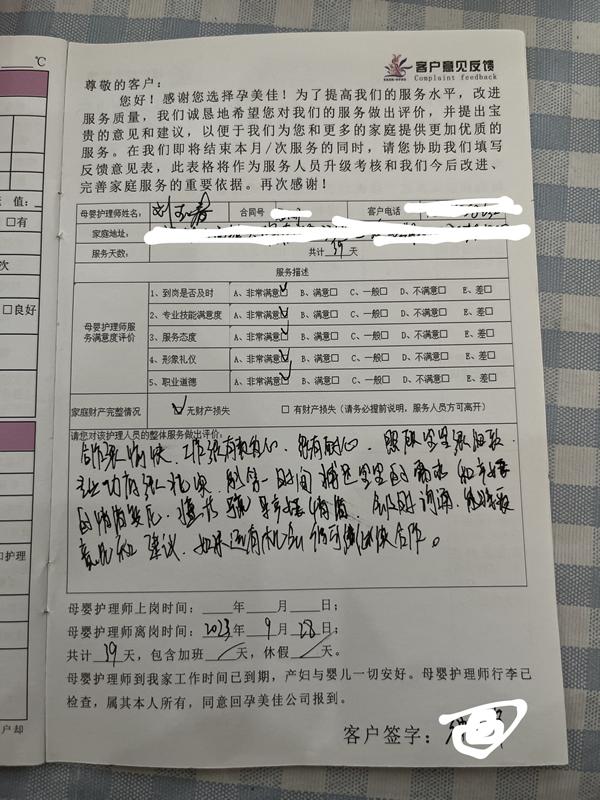 ℃
客户意见反馈
Complaint feedback
尊敬的客户：
您好！感谢您选择孕美佳！为了提高我们的服务水平，改进
服务质量，我们诚恳地希望您对我们的服务做出评价，并提出宝
贵的意见和建议，以便于我们为您和更多的家庭提供更加优质的
服务。在我们即将结束本月/次服务的同时，请您协助我们填写
反馈意见表，此表格将作为服务人员升级考核和我们今后改进、
完善家庭服务的重要依据。再次感谢！
母婴护理师姓名： 合同号 客户电话
家庭地址：
服务天数： 共计 39 天
服务描述
母婴护理师服
务满意度评价
1、到岗是否及时 A、非常满意☑ B、满意□ C、一般□ D、不满意□ E、差□
2、专业技能满意度 A、非常满意☑ B、满意□ C、一般□ D、不满意□ E、差□
3、服务态度 A、非常满意☑ B、满意□ C、一般□ D、不满意□ E、差□
4、形象礼仪 A、非常满意☑ B、满意□ C、一般□ D、不满意□ E、差□
5、职业道德 A、非常满意☑ B、满意□ C、一般□ D、不满意□ E、差□
家庭财产完整情况 ☑ 无财产损失 □ 有财产损失（请务必提前说明，服务人员方可离开）
请您对该护理人员的整体服务做出评价：
合作很愉快、工作很有责任心、很有耐心、照顾宝宝很细致、
专业功底很扎实、能第一时间捕捉宝宝的需求和产妇
的情绪变化、产妇情绪、会及时沟通、
意见和建议、如果还有机会仍可继续合作。
母婴护理师上岗时间：____年____月____日；
母婴护理师离岗时间：2023年 9 月 28 日；
共计 39 天，包含加班 / 天，休假 / 天。
母婴护理师到我家工作时间已到期，产妇与婴儿一切安好。母婴护理师行李已
检查，属其本人所有，同意回孕美佳公司报到。
客户签字：
值：
□有
次
□良好
和护理
户 却